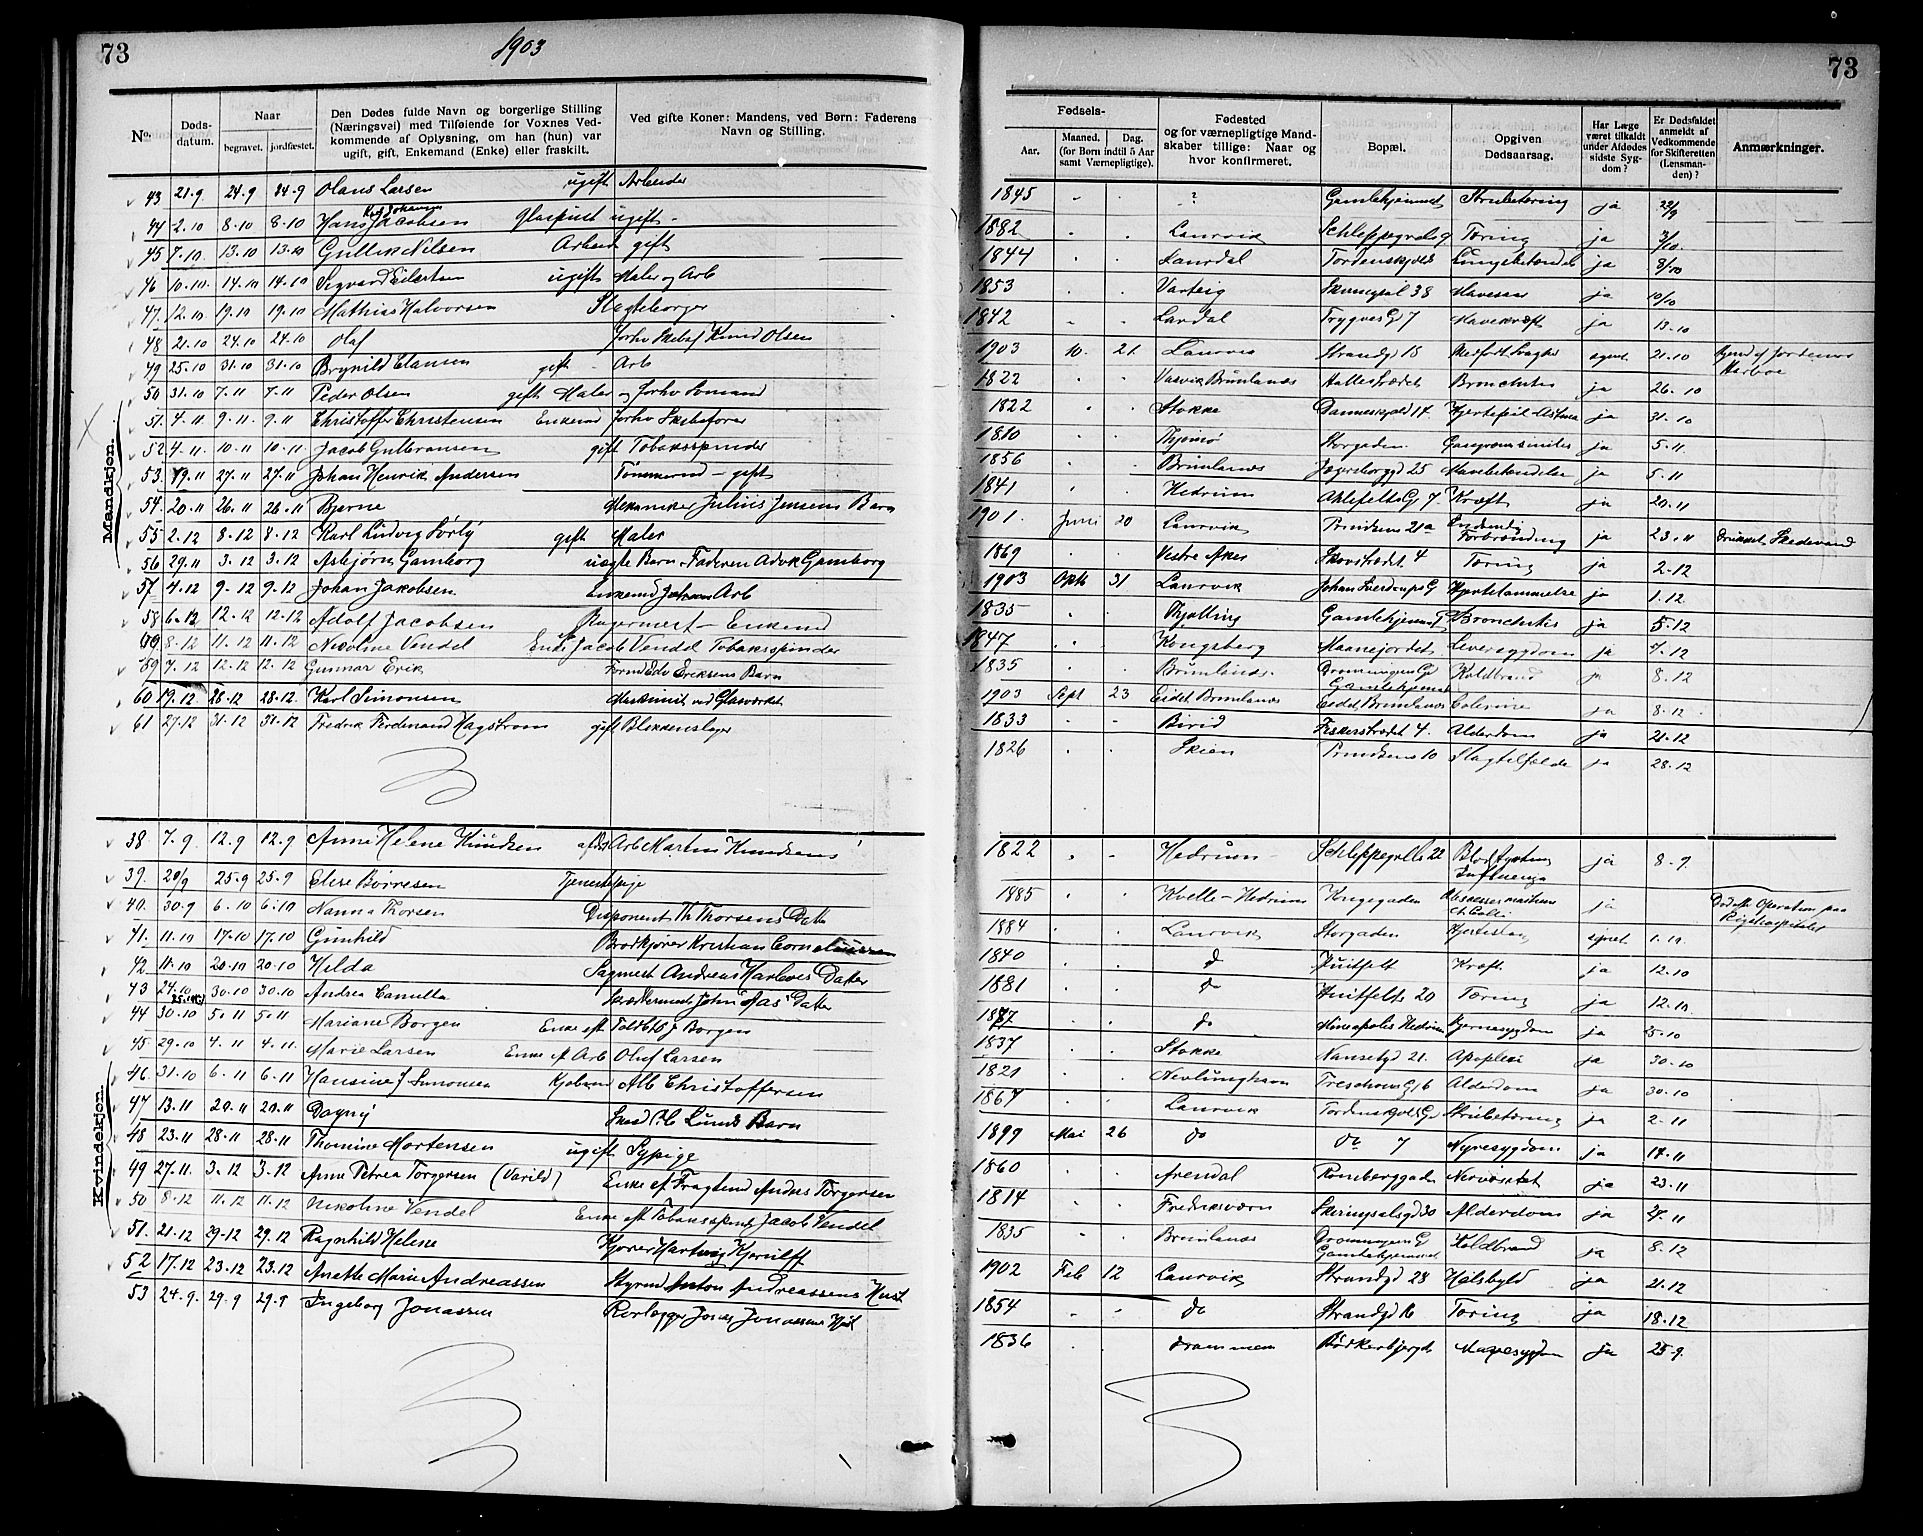 73
1903
No.
Døds-datum.
Naar
begravet.
jordfæstet.
Den Dødes fulde Navn og borgerlige Stilling (Næringsvei) med Tilføiende for Voxnes Vedkommende af Oplysning, om han (hun) var ugift, gift, Enkemand (Enke) eller fraskilt.
Ved gifte Koner: Mandens, ved Børn: Faderens Navn og Stilling.
Mandkjøn.
43 21.9 24.9 24.9 Olaus Larsen ugift Arbeider
44 2.10 8.10 8.10 Hans Jacobsen Glaspust ugift
45 7.10 13.10 13.10 Gullik Nilsen Arbeid gift
46 10.10 14.10 14.10 Sigvard Eilertsen ugift Maler og Arb
47 12.10 19.10 19.10 Mathias Halvorsen
48 21.10 24.10 24.10 Olaf Forhv Skibsf Knud Olsen
49 25.10 31.10 31.10 Brynild Clausen gift Arb
50 31.10 7.11 7.11 Peder Olsen gift Maler og Forhv Sømand
51 4.11 9.11 9.11 Christoffer Christensen Enkemd Forhv Skibsfører
52 4.11 10.11 10.11 Jacob Gulbransen gift Tobaksspinder
53 19.11 27.11 27.11 Johan Henrik Andersen Tømmermd - gift
54 20.11 26.11 26.11 Bjarne Mekaniker Julius Jensens Barn
55 2.12 8.12 8.12 Karl Ludvig Sørby gift Maler
56 29.11 3.12 3.12 Asbjørn Gamborg uægte Barn - Faderen Advk Gamborg
57 4.12 9.12 9.12 Johan Jakobsen Enkemd Arb
58 6.12 12.12 12.12 Adolf Jacobsen Bagermest - Enkemd
59 8.12 11.12 11.12 Nicoline Vendel Enke Jacob Vendel Tobaksspinder
59 7.12 12.12 12.12 Gunnar Erik Formd Edv Eriksens Barn
60 19.12 28.12 28.12 Karl Simonsen Maskinist ved Glasværket
61 27.12 31.12 31.12 Fredrik Ferdinand Hagstrøm gift Blikkenslager
Kvindekjøn.
38 7.9 12.9 12.9 Anne Helene Knudsen Arb Martin Knudsens
39 20/9 25.9 25.9 Elise Børresen Tjenestepige
40 30.9 6.10 6.10 Nanna Thorsen Disponent Th Thorsens Datter
41 11.10 17.10 17.10 Gunhild Brødkjører Kristian Corneliussen
42 11.10 20.10 20.10 Hilda Sagmest Andreas Harlows Datter
43 24.10 30.10 30.10 Andrea Camilla Skræddermest John Aas Datter
44 30.10 5.11 5.11 Mariane Borgen Enke eft Toldbtj Borgen
45 29.10 4.11 4.11 Marie Larsen Enke af Arb Oluf Larsen
46 31.10 6.11 6.11 Hansine J Simonsen Kjøbmd Alb Christoffersen
47 13.11 20.11 20.11 Dagny Lunds Barn
48 23.11 28.11 28.11 Thomine Mortensen ugift Sypige
49 27.11 3.12 3.12 Anne Petrea Torgersen (Varild) Enke af Fragtemd Andrs Torgersen
50 8.12 11.12 11.12 Nikoline Vendel Enke eft Tobaksspind Jacob Vendel
51 21.12 29.12 29.12 Ragnhild Helene Kjører Hartwig Kjerulff
52 17.12 23.12 23.12 Anette Marie Andreassen Styrmd Anton Andreassens Hust
53 24.9 29.9 29.9 Ingeborg Jonassen Rørlægger Jonas Jonassens Hust
73
Fødsels-
Aar.
Maaned. Dag.
(for Børn indtil 5 Aar samt Værnepligtige).
Fødested og for værnepligtige Mandskaber tillige: Naar og hvor konfirmeret.
Bopæl.
Opgiven Dødsaarsag.
Har Læge været tilkaldt under Afdødes sidste Sygdom?
Er Dødsfaldet anmeldt af Vedkommende for Skifteretten (Lensmanden)?
Anmærkninger.
1845 ? Gamlehjemmet Strubetæring ja 22/9
1882 Laurvik Schleppegrels g Tæring ja 3/10
1844 Laurdal Tordenskjolds Lungebetændel ja 8/10
1853 Varteig Skiringsal 38 Mavesaar ja 10/10
1842 Lardal Trygves G 7 Mavekræft ja 13.10
1903 10. 21 Laurvik Strandgd 18 Medfødt Svaghed 21.10
1822 Brunlanæs Bronchitis ja 26.10
1822 Stokke Danneskjold 14 Hjertefeil Astma ja 31.10
1810 Thjømø Storgaden ja 5.11
1856 Brunlanæs Jegersborggd 25 Mavebetændelse ja 5.11
1841 Hedrum Ahlefelts G 7 Kræft ja 20.11
1901 Juni 20 Laurvik 21a Indvendig Forbrænding ja 23.11 Drukket Skedevand
1869 Vestre Aker Skovstrædet 4 Tæring ja 2.12
1903 Okt 31 Laurvik Johan Sverdrups G Hjertelammelse ja 1.12
1835 Thjølling Gamlehjemmet Bronchitis ja 5.12
1847 Kongsberg Maanejordet Leversygdom ja 7.12
1835 Brunlanæs Dronningens G Gamlehjemmet Koldbrand ja 8.12
1903 Sept 23 Eidet Brunlanæs Eidet Brunlanæs Colerine ja 8.12
1833 Birid Fiskerstrædet 4 Alderdom ja 21.12
1826 Skien 10 Slagtilfælde ja 28.12
1822 Hedrum Schleppegrells 22 Influenza ja 8.9
1885 Kvelle - Hedrum Kongegaden ja Død eft Operation paa Rigshospitalet
1884 Laurvik Storgaden Hjerteslag 1.10
1840 do Huitfelt Kræft ja 12.10
1881 do Huitfelts 20 Tæring ja 12.10
1877 do Mineapolis Hedrum Hjernesygdom ja 25.10
1837 Stokke Nansetgd 21 Apoplexi ja 30.10
1821 Nevlunghavn Treschows G 6 Alderdom ja 30.10
1867 Laurvik Tordenskjolds G Strubetæring ja 2.11
1899 Mai 26 do do 7 Nyresygdom ja 14.11
1860 Arendal Rombergaden Nervøsitet ja 23.11
1814 Fredriksværn Skiringsalsgd 30 Alderdom ja 27.11
1835 Brunlanæs Dronningens G Gamlehjemmet Koldbrand ja 8.12
1902 Feb 12 Laurvik Strandgd 28 Halsbyld ja 21.12
1854 do Strandgd 16 Tæring ja 18.12
1836 Drammen Bødkerbjergt Mavesygdom ja 25.9